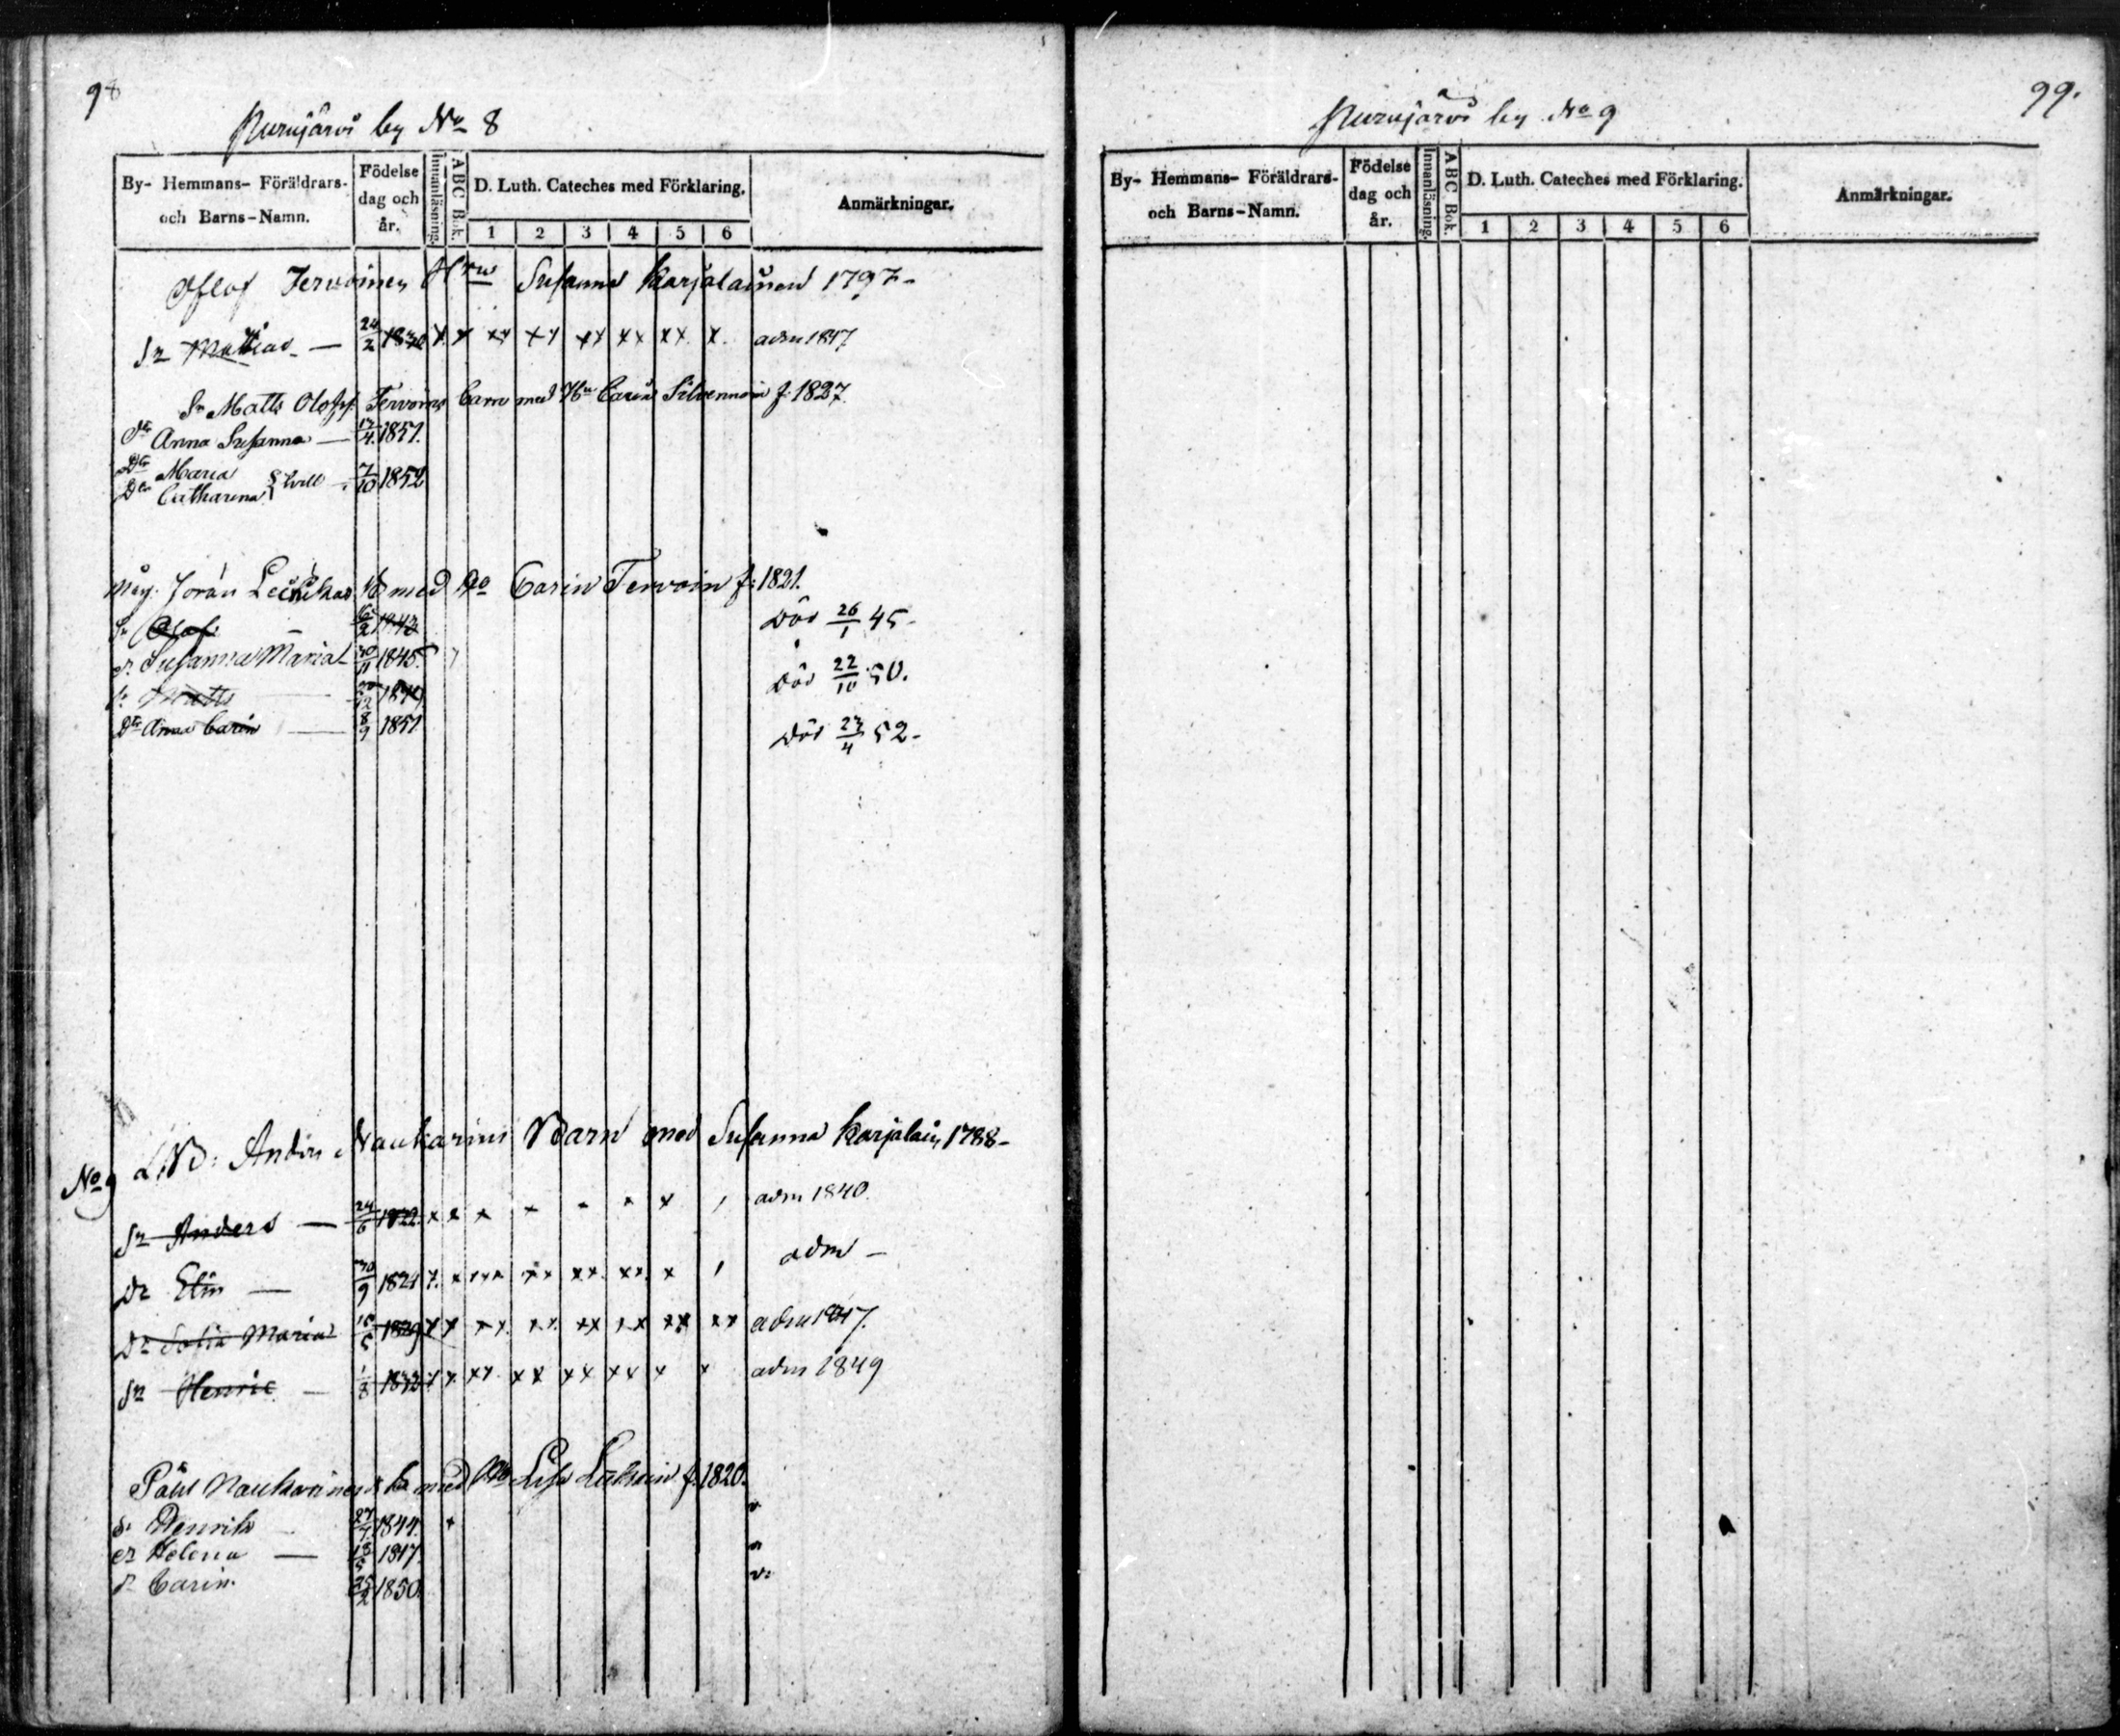 98
Nurujärvi by No 8
By- Hemmans- Föräldrars- och Barns-Namn.
Födelse dag och år.
Innanläsning.
ABC Bok.
D. Luth. Cateches med Förklaring.
1 2 3 4 5 6
Anmärkningar.
Olof Tervoinen Susanna Karjalainen 1797-
Sn Mattias — 24/2 1830 x x xx xx xx xx xx x. adm 1847
Sn Matts Olofss. Tervoins Barn med Hu Carin Silvennoin f: 1827.
Dtr Anna Susanna — 17/4. 1851.
Dtr Maria
Dtr Catharina } tvill - 7/10 1852
Måg. Jöran B med Carin Tervoin f: 1821.
Sn Olof 1843 Död 26/1 45-
dr Susanna Maria 30/11 1845.
Sn Matts 1849 Död 22/10 50.
Dtr Anna Carin — 8/9 1851 Död 23/4 52-
No 9 Anders Naukarins Barn med Susanna Karjalain 1788-
Sn Anders — 24/6 1822. x x x x - x x , adm 1840.
Dr Elin — 30/9 1824 x. x xxx xx xx. xx. x , adm —
Dr Sofia Maria 1829 x x xx. xx. xx xx xx xx adm 1847.
Sn Henric — 1/8 1832 x x xx xx xx xx x x adm 1849
Påhl Naukarinens B med Lisa f. 1820.
Sn Henrik 27/7. 1844. +
dr Helena — 1847.
dr Carin. 25/2 1850.
99.
Nurujärvi by No 9
By- Hemmans- Föräldrars- och Barns-Namn.
Födelse dag och år.
Innanläsning.
ABC Bok.
D. Luth. Cateches med Förklaring.
1 2 3 4 5 6
Anmärkningar.